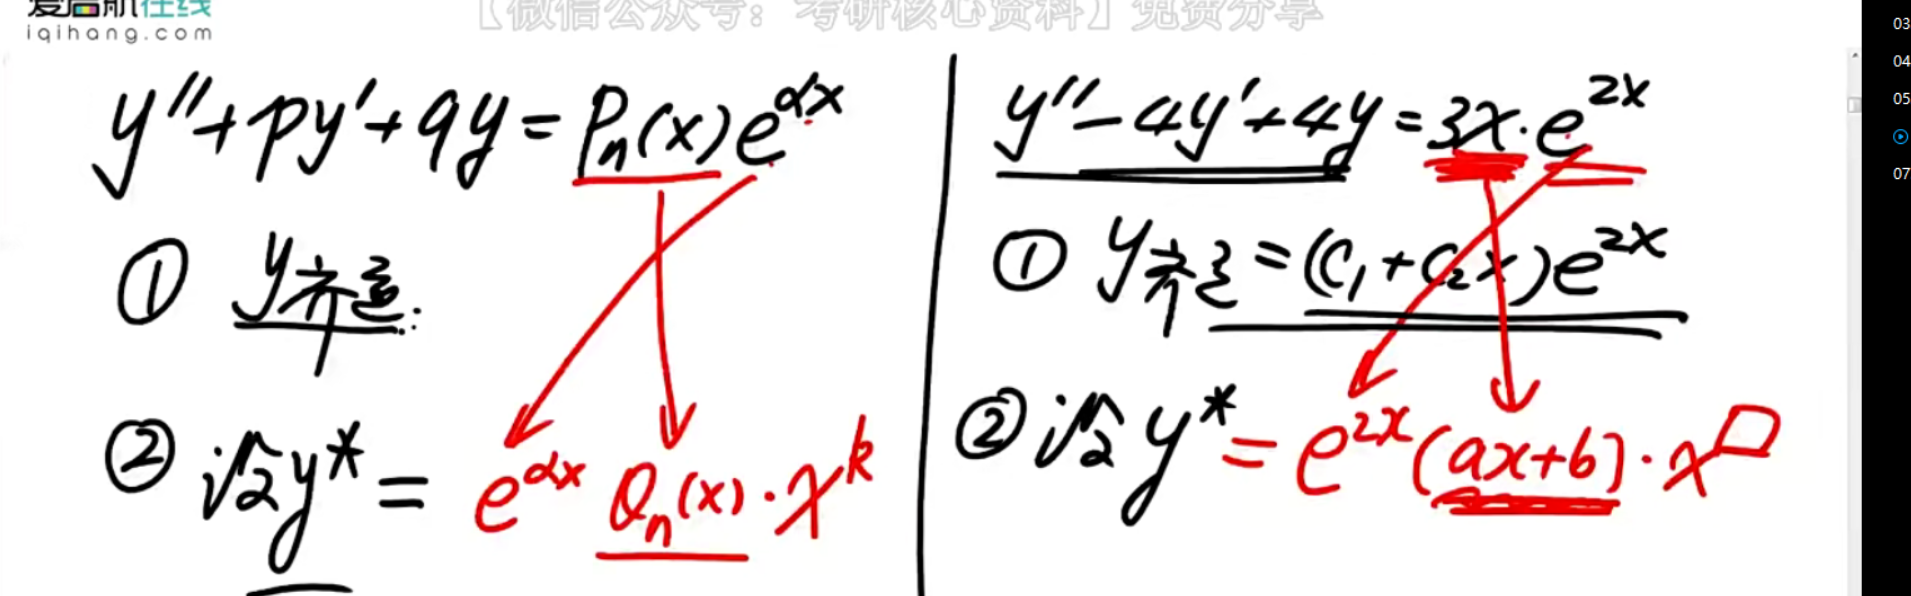 爱启航在线
iqihang.com
【微信公众号：考研核心资料】免费分享
y''+py'+qy=Pn(x)e^{αx}
① y齐通:
② 设y*=e^{αx}Qn(x)·x^k
y''-4y'+4y=3x·e^{2x}
① y齐通=(C₁+C₂x)e^{2x}
② 设y*=e^{2x}(ax+b)·x^□
03
04
05
07